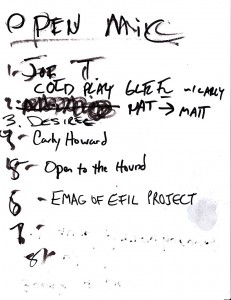 OPEN MIKE
1- JOE T.
COLD PLAY
2. MAT → MATT
3. DESIREE
- Carly Howard
- Open to the Hound
6 - EMAG OF EFIL PROJECT
7 -
8 -